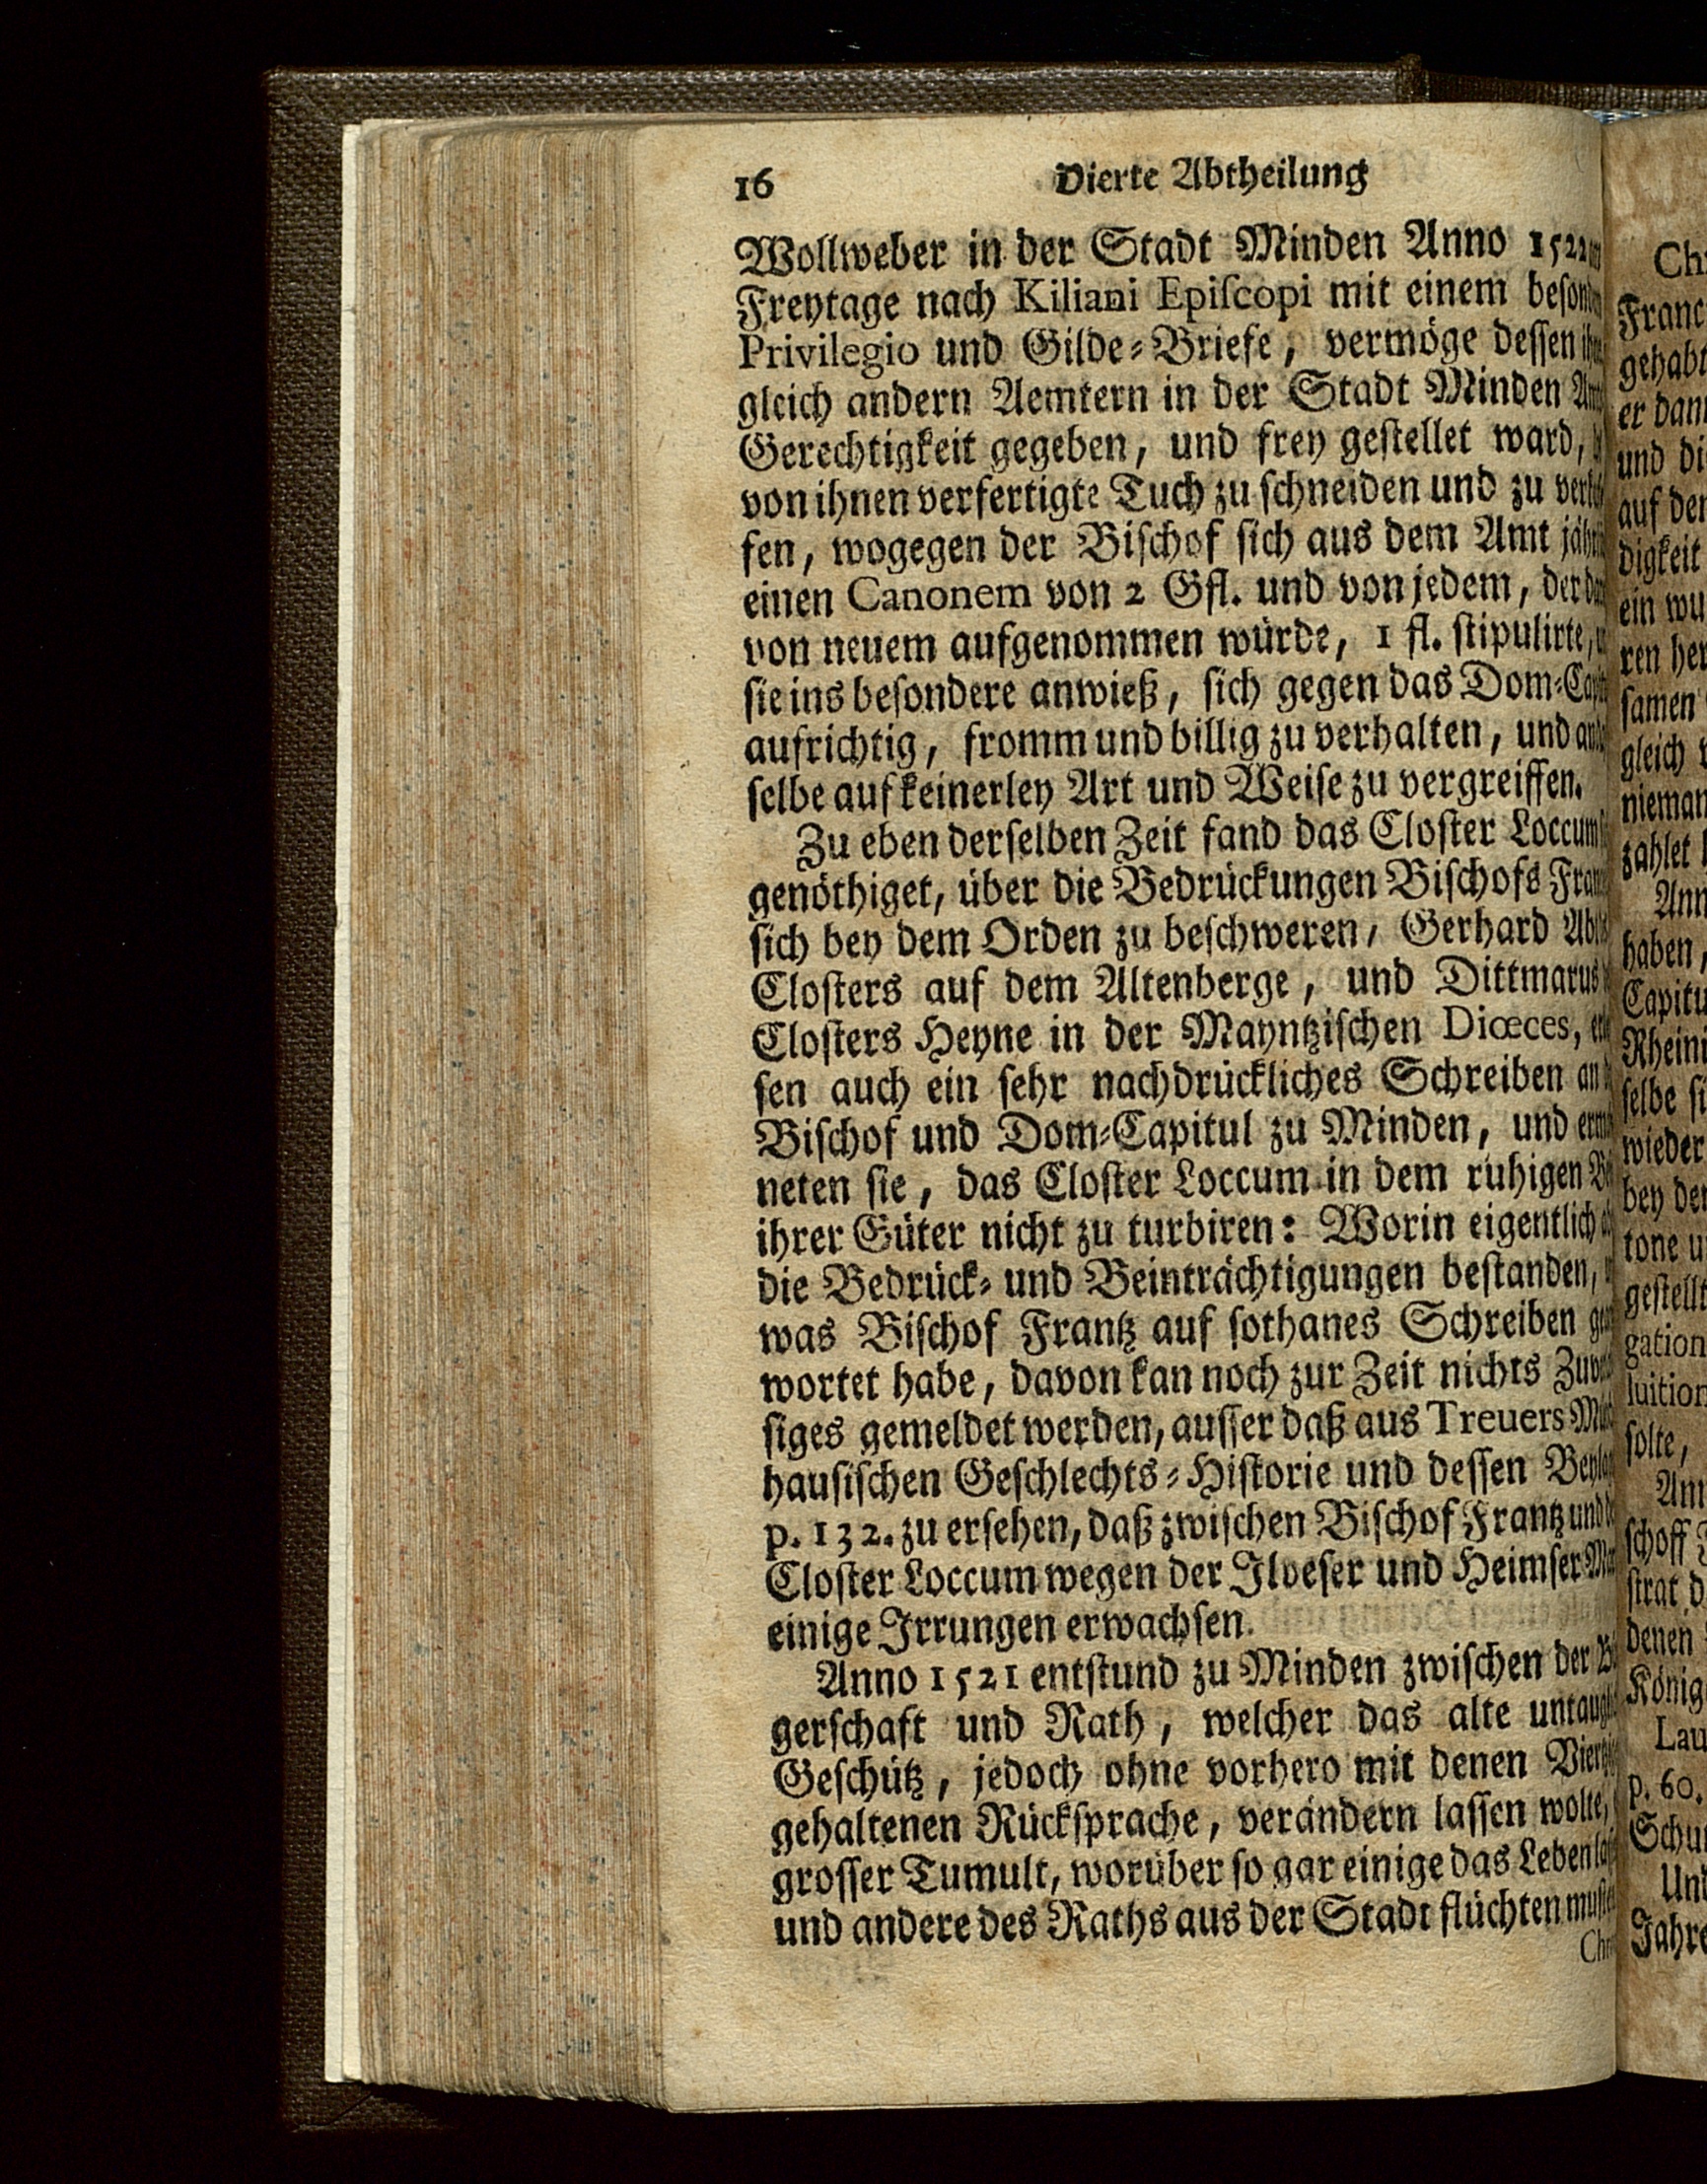 16 Vierte Abtheilung
Wollweber in der Stadt Minden Anno
Freytage nach Kiliani Episcopi mit einem
Privilegio und Gilde-Briefe, vermöge dessen
gleich andern Aemtern in der Stadt Minden
Gerechtigkeit gegeben, und frey gestellet ward,
von ihnen verfertigte Tuch zu schneiden und zu
fen, wogegen der Bischof sich aus dem Amt
einen Canonem von 2 Gfl. und von jedem, der
von neuem aufgenommen würde, 1 fl. stipulirte,
sie ins besondere anwieß, sich gegen das
aufrichtig, fromm und billig zu verhalten, und
selbe auf keinerley Art und Weise zu vergreiffen.
Zu eben derselben Zeit fand das Closter Loccum
genöthiget, über die Bedrückungen Bischofs
sich bey dem Orden zu beschweren, Gerhard
Closters auf dem Altenberge, und Dittmarus
Closters Heyne in der Mayntzischen Diœces,
sen auch ein sehr nachdrückliches Schreiben
Bischof und Dom-Capitul zu Minden, und
neten sie, das Closter Loccum in dem ruhigen
ihrer Güter nicht zu turbiren: Worin eigentlich
die Bedrück- und Beinträchtigungen bestanden,
was Bischof Frantz auf sothanes Schreiben
wortet habe, davon kan noch zur Zeit nichts
siges gemeldet werden, ausser daß aus Treuers
hausischen Geschlechts-Historie und dessen
p. 132. zu ersehen, daß zwischen Bischof Frantz und
Closter Loccum wegen der Ilveser und Heimser
einige Irrungen erwachsen.
Anno 1521 entstund zu Minden zwischen der
gerschaft und Rath, welcher das alte
Geschütz, jedoch ohne vorhero mit denen
gehaltenen Rücksprache, verändern lassen wolte,
grosser Tumult, worüber so gar einige das Leben
und andere des Raths aus der Stadt flüchten